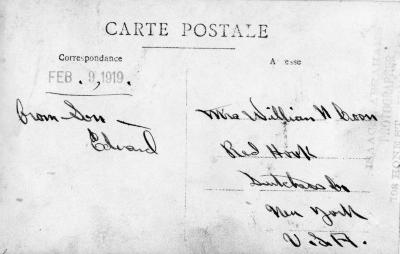 CARTE POSTALE
Correspondance
A esse
FEB. 9, 1919.
From Son
Edward
Mrs William H Coon
Red Hook
Dutchess Co
New York
U.S.A.